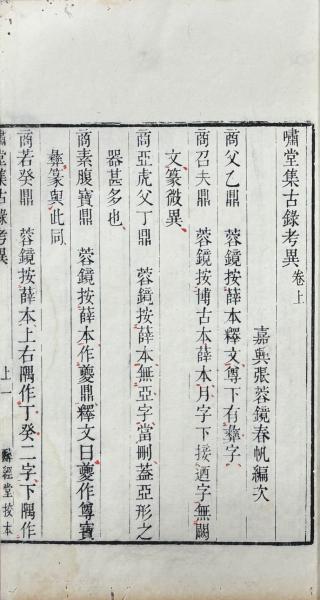 嘯堂集古錄考異卷上
嘉興張蓉鏡春帆編次
商父乙鼎 蓉鏡按薛本釋文尊下有彝字
商召夫鼎 蓉鏡按博古本薛本月字下接迺字無闕
文篆微異
商亞虎父丁鼎 蓉鏡按薛本無亞字當刪蓋亞形之
器甚多也
商素腹寶鼎 蓉鏡按薛本作夔鼎釋文曰夔作尊寶
彝篆與此同
商若癸鼎 蓉鏡按薛本上右隅作丁癸二字下隅作
嘯堂集古錄考異
上 一
經堂校本